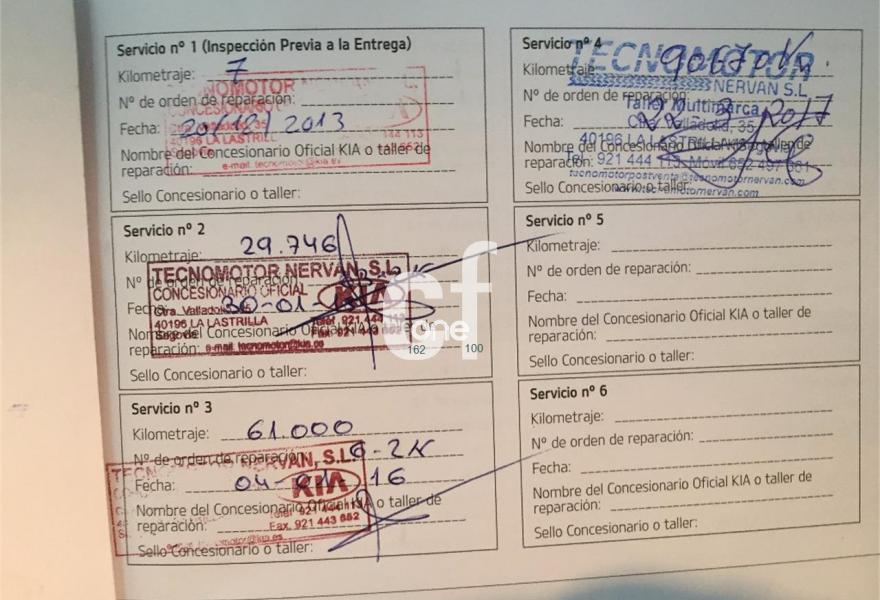 Servicio nº 1 (Inspección Previa a la Entrega)
Kilometraje: 7
TECNOMOTOR
Nº de orden de reparación:
CONCESIONARIO
Fecha: 2013
Ctra. Valladolid, 35
40196 LA LASTRILLA
Nombre del Concesionario Oficial KIA o taller de
reparación:
Sello Concesionario o taller:
Servicio nº 2
Kilometraje: 29.746
TECNOMOTOR NERVAN, S.L.
Nº de orden de reparación:
CONCESIONARIO OFICIAL
KIA
Fecha: 30-01-
Ctra. Valladolid, 35
40196 LA LASTRILLA
Telef. 921 444 113
Segovia
Fax. 921 443 652
Nombre del Concesionario Oficial KIA o taller de
reparación:
e-mail. tecnomotor@kia.es
Sello Concesionario o taller:
Servicio nº 3
Kilometraje: 61.000
Nº de orden de reparación:
TECNOMOTOR NERVAN, S.L.
KIA
Fecha: 04-01-16
Nombre del Concesionario Oficial KIA o taller de
reparación:
Telef. 921 444 113
Fax. 921 443 652
Sello Concesionario o taller:
Servicio nº 4
TECNOMOTOR
Kilometraje: 90670
NERVAN S.L
Nº de orden de reparación:
Taller Multimarca
Fecha: 2017
Ctra. Valladolid, 35
40196 LA LASTRILLA
Nombre del Concesionario Oficial KIA o taller de
reparación:
Tel. 921 444 113 Móvil 652 497 661
tecnomotorpostventa@tecnomotornervan.com
Sello Concesionario o taller:
www.tecnomotornervan.com
Servicio nº 5
Kilometraje:
Nº de orden de reparación:
Fecha:
Nombre del Concesionario Oficial KIA o taller de
reparación:
Sello Concesionario o taller:
Servicio nº 6
Kilometraje:
Nº de orden de reparación:
Fecha:
Nombre del Concesionario Oficial KIA o taller de
reparación:
Sello Concesionario o taller:
cf
one
162 100